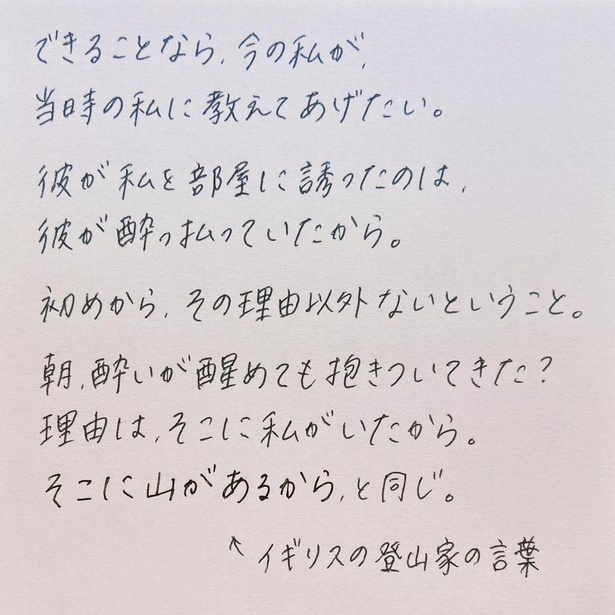 できることなら、今の私が、
当時の私に教えてあげたい。
彼が私を部屋に誘ったのは、
彼が酔っ払っていたから。
初めから、その理由以外ないということ。
朝、酔いが醒めても抱きついてきた?
理由は、そこに私がいたから。
そこに山があるから、と同じ。
↑イギリスの登山家の言葉